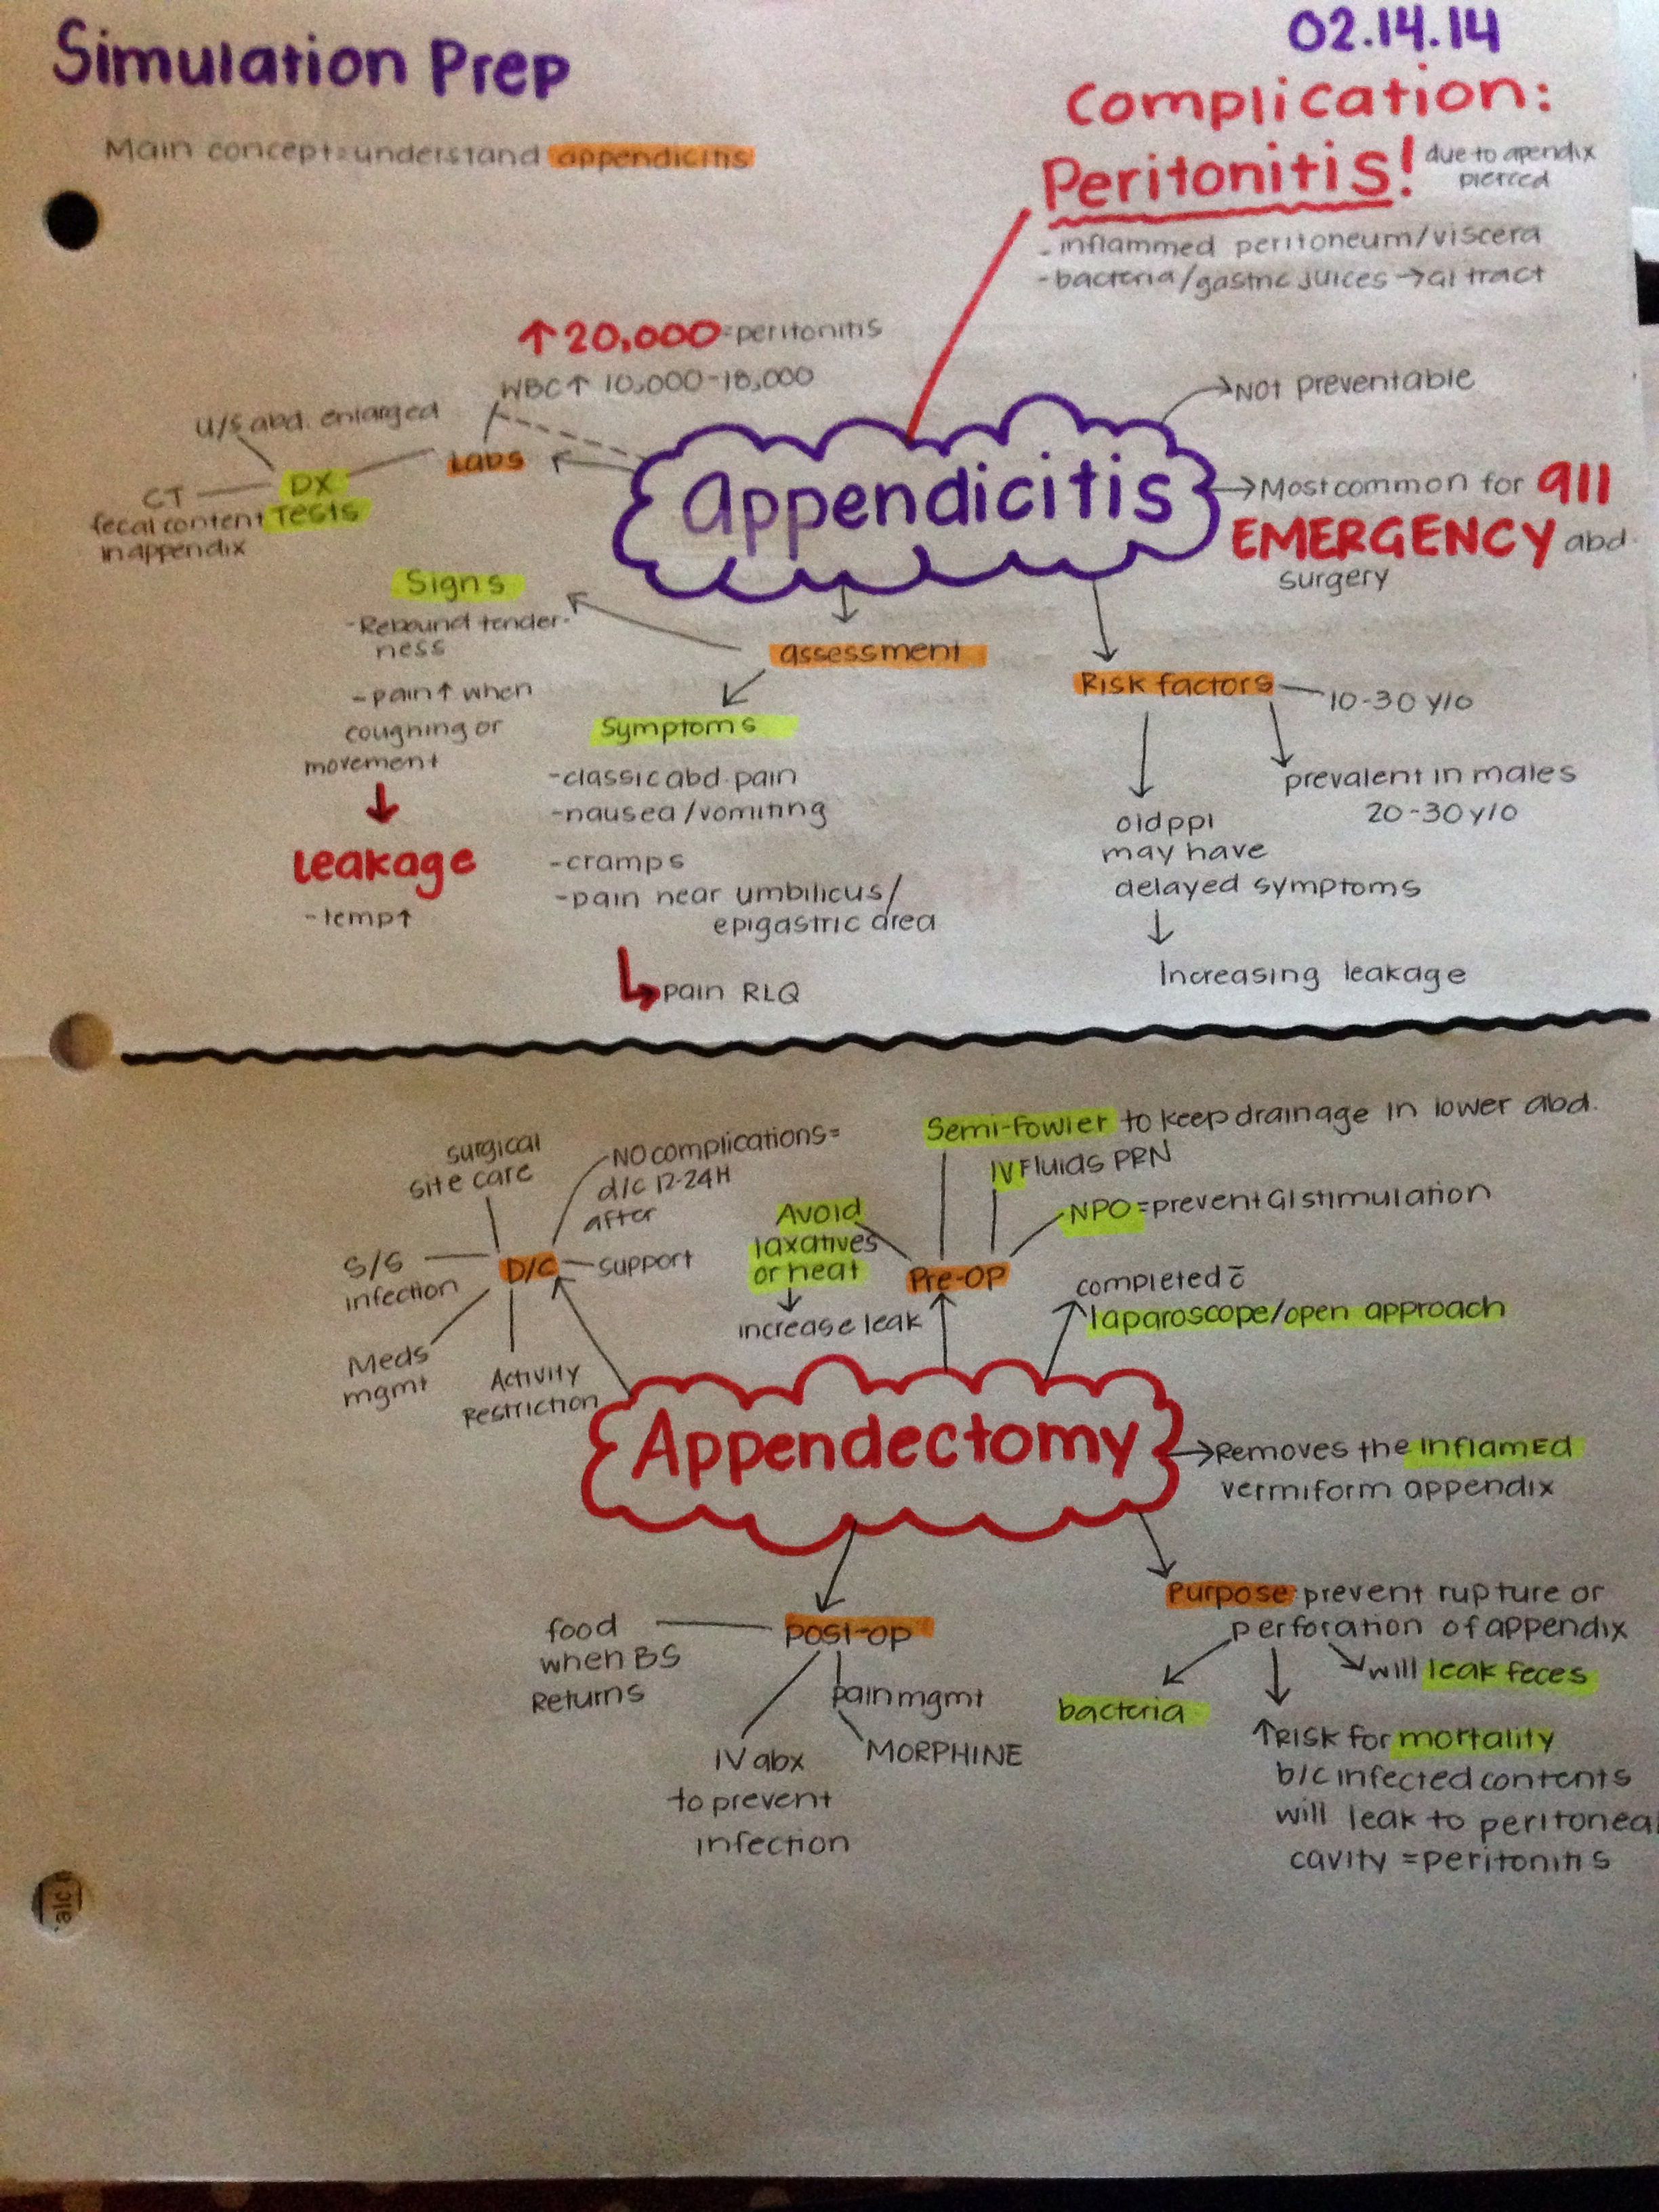 Simulation Prep
02.14.14
Main concept=understand appendicitis
Complication:
Peritonitis!
due to apendix
pierced
- inflammed peritoneum/viscera
- bacteria/gastric juices → GI tract
↑ 20,000 = peritonitis
WBC↑ 10,000-18,000
U/S abd. enlarged
Labs
DX
Tests
CT
fecal content
in appendix
Appendicitis
→ Not preventable
→ Most common for 911
EMERGENCY abd.
surgery
Signs
- Rebound tender-
ness
- pain↑ when
coughing or
movement
↓
Leakage
- temp↑
assessment
Symptoms
- classic abd. pain
- nausea/vomiting
- cramps
- pain near umbilicus/
epigastric area
↳ pain RLQ
Risk factors
10-30 y/o
prevalent in males
20-30 y/o
old ppl
may have
delayed symptoms
↓
Increasing leakage
surgical
site care
NO complications =
d/c 12-24H
after
S/S
infection
D/C
support
Meds
mgmt
Activity
Restriction
Semi-fowler to keep drainage in lower abd.
IV Fluids PRN
NPO = prevent GI stimulation
Avoid
laxatives
or heat
↓
increase leak
Pre-OP
completed c̄
laparoscope/open approach
Appendectomy
→ Removes the inflamEd
vermiform appendix
Purpose prevent rupture or
perforation of appendix
will leak feces
bacteria
↑ RISK for mortality
b/c infected contents
will leak to peritoneal
cavity = peritonitis
post-op
food
when BS
Returns
pain mgmt
MORPHINE
IV abx
to prevent
infection
alc